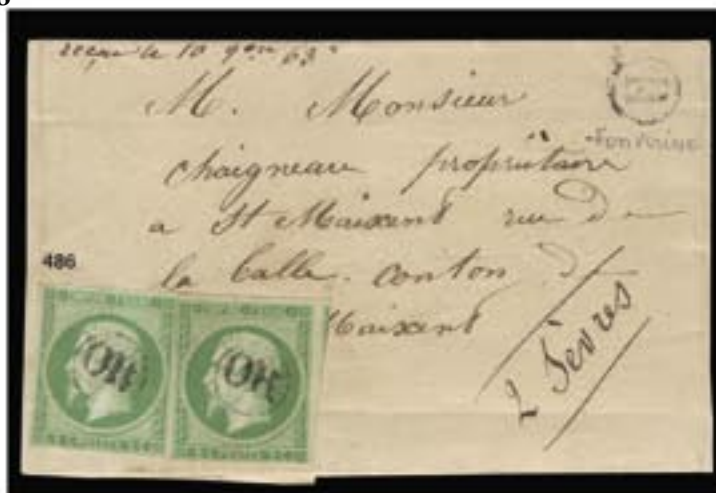 reçu le 10 9bre 63
M. Monsieur
chaigneau propriétaire
a St Maixent rue de
la balle. conton de
Maixent
2 Sèvres
486
OR
OR